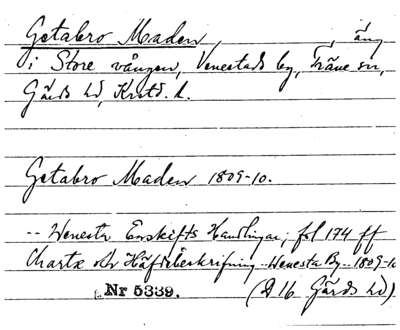 Getabro Maden, , äng
i Store vången, Venestads by, Träne sn,
Gärds hd, Kristd. l.
Getabro Maden 1809-10.
-- Wenesta Enskifts Handlingar, fol 174 ff
Charta och Häfdebeskrifning -- Wenesta By -- 1809-10
Nr 5339. (D 16 Gärds hd)